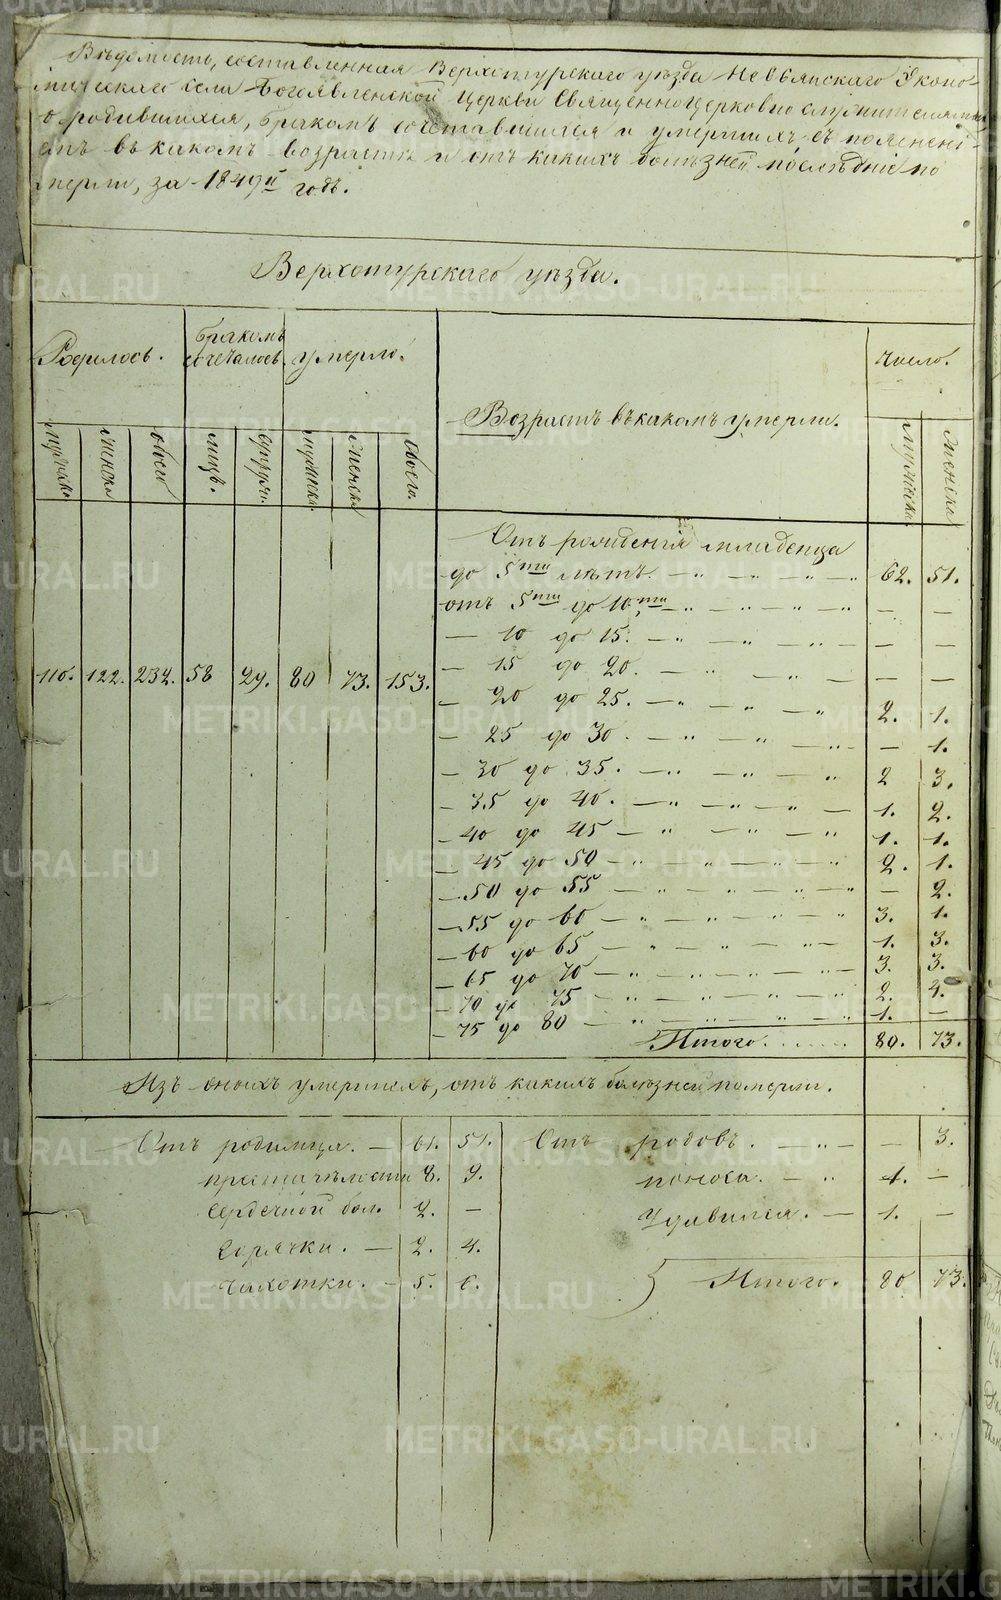 Вѣдомость, составленная Верхотурскаго уѣзда Невьянскаго Эконо-
мическаго села Богоявленской Церкви Священноцерковно служителями
о родившихся, бракомъ сочетавшихся и умершихъ, съ поясненi-
емъ въ какомъ возрасте и отъ какихъ болѣзней послѣднiе по
мерли, за 1849й годъ.
Верхотурскаго уѣзда.
Родилось. Бракомъ сочеталось. Умерло. Возрастъ въ какомъ умерли. Число.
мужеска. женска обоего лицъ. супруж. мужеска. женска обоего. мужеска. женска
Отъ рожденiя младенца
до 5ти лѣтъ. — „ — „ — „ — 62. 51.
отъ 5ти до 10ти — „ — „ — „ — „ — —
— 10 до 15. — „ — „ — „ — — —
— 15 до 20. — „ — „ — — —
110. 122. 232. 58 29. 80 73. 153.
— 20 до 25. — „ — „ — „ 2. 1.
— 25 до 30. — „ — „ — „ — 1.
— 30 до 35. — „ — „ — „ 2 3.
— 35 до 40. — „ — „ — „ — 1. 2.
— 40 до 45 — „ — „ — „ 1. 1.
— 45 до 50 — „ — „ — „ — „ 2. 1.
— 50 до 55 — „ — „ — „ — „ — 2.
— 55 до 60 — „ — „ — „ — „ 3. 1.
— 60 до 65 — „ — „ — „ — 1. 3.
— 65 до 70 — „ — „ — „ — „ 3. 3.
— 70 до 75 — „ — „ — „ — „ 2. 4.
— 75 до 80 — „ — „ — „ — „ 1. —
Итого. 80. 73.
Изъ оныхъ умершихъ, отъ какихъ болѣзней померли.
Отъ родимца. — 61. 51. Отъ родовъ. „ — — 3.
престарѣлости 8. 9. поноса. — „ 1. —
Сердечной бол. 2. — Удавился. — 1. —
Горячки. — 2. 4.
Чахотки. — 5. 6. Итого. 80. 73.
METRIKI.GASO-URAL.RU